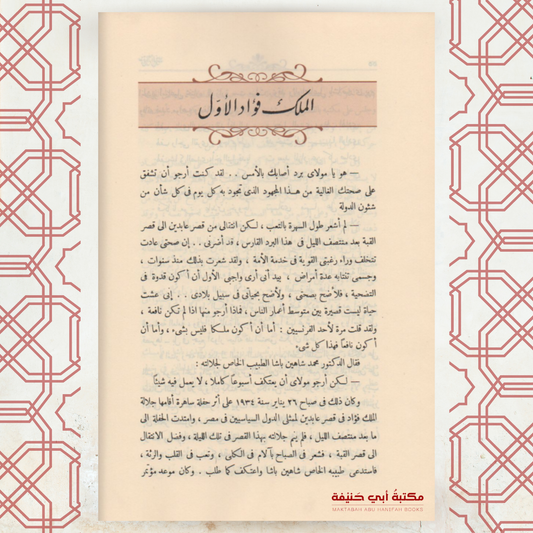 الملك فؤاد الأول
— هو يا مولاى برد أصابك بالأمس . . لقد كنت أرجو أن تشفق
على صحتك الغالية من هذا المجهود الذى تجود به كل يوم فى كل شأن من
شئون الدولة
— لم أشعر طول السهرة بالتعب ، لكن انتقالى من قصر عابدين الى قصر
القبة بعد منتصف الليل فى هذا البرد القارس ، قد أضرنى . . إن صحتى عادت
تتخلف وراء رغبتى القوية فى خدمة الأمة ، ولقد شعرت بذلك منذ سنوات ،
وجسمى تنتابه عدة أمراض ، بيد أنى أرى واجبى الأول أن أكون قدوة فى
التضحية ، فلأضح بصحتى ، ولأضح بحياتى فى سبيل بلادى . . إنى عشت
حياة ليست قصيرة بين متوسط أعمار الناس ، فماذا أرجو منها اذا لم تكن نافعة ،
ولقد قلت مرة لأحد الفرنسيين : أما أن أكون ملكا فليس بشىء ، وأما أن
أكون نافعاً فهذا كل شىء
فقال الدكتور محمد شاهين باشا الطبيب الخاص لجلالته :
— لكن أرجو مولاى أن يعتكف أسبوعاً كاملا ، لا يعمل فيه شيئاً
وكان ذلك فى صباح ٢٦ يناير سنة ١٩٣٤ على أثر حفلة ساهرة أقامها جلالة
الملك فؤاد فى قصر عابدين لممثلى الدول السياسيين فى مصر ، وامتدت الحفلة الى
ما بعد منتصف الليل ، فلم ينم جلالته بهذا القصر فى تلك الليلة ، وفضل الانتقال
الى قصر القبة ، فشعر فى الصباح بآلام فى الكلى ، وتعب فى القلب والرئة ،
فاستدعى طبيبه الخاص شاهين باشا واعتكف كما طلب . وكان موعد مؤتمر
مكتبة أبي حنيفة
MAKTABAH ABU HANIFAH BOOKS